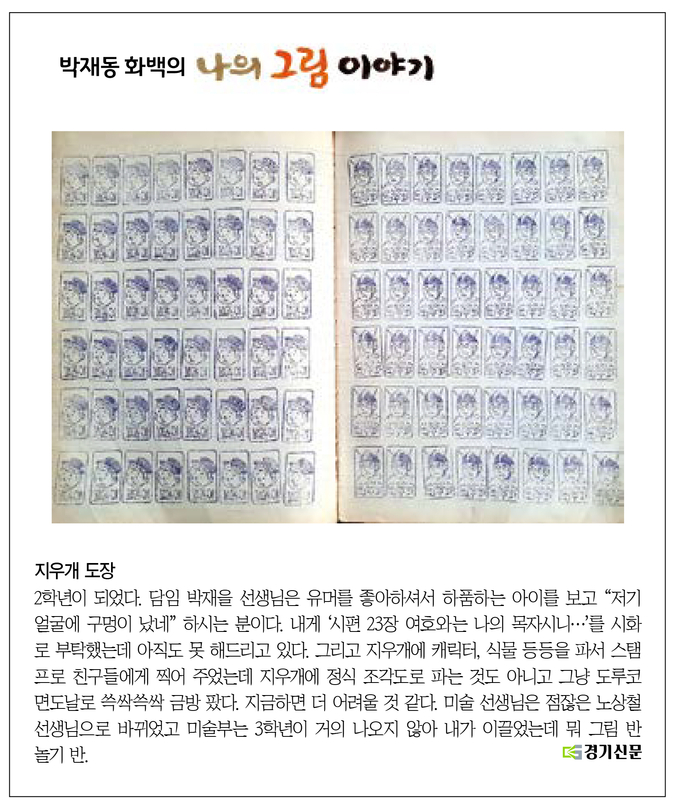 박재동 화백의 나의 그림 이야기
지우개 도장
2학년이 되었다. 담임 박재을 선생님은 유머를 좋아하셔서 하품하는 아이를 보고 “저기
얼굴에 구멍이 났네” 하시는 분이다. 내게 ‘시편 23장 여호와는 나의 목자시니…’를 시화
로 부탁했는데 아직도 못 해드리고 있다. 그리고 지우개에 캐릭터, 식물 등등을 파서 스탬
프로 친구들에게 찍어 주었는데 지우개에 정식 조각도로 파는 것도 아니고 그냥 도루코
면도날로 쓱싹쓱싹 금방 팠다. 지금하면 더 어려울 것 같다. 미술 선생님은 점잖은 노상철
선생님으로 바뀌었고 미술부는 3학년이 거의 나오지 않아 내가 이끌었는데 뭐 그림 반
놀기 반.
경기신문